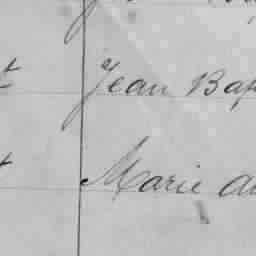 t Jean Bap
t Marie au